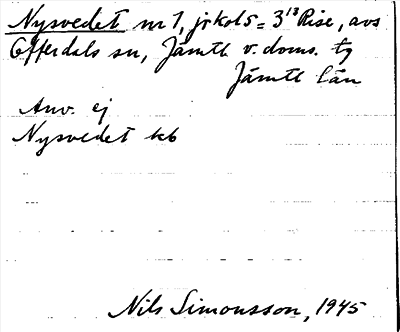 Nysvedet nr 1, jrkol 5 = 3¹³ Rise, avs
Offerdals sn, Jämtl v. doms. tg
Jämtl län
Anv. ej
Nysvedet kb
Nils Simonsson, 1945